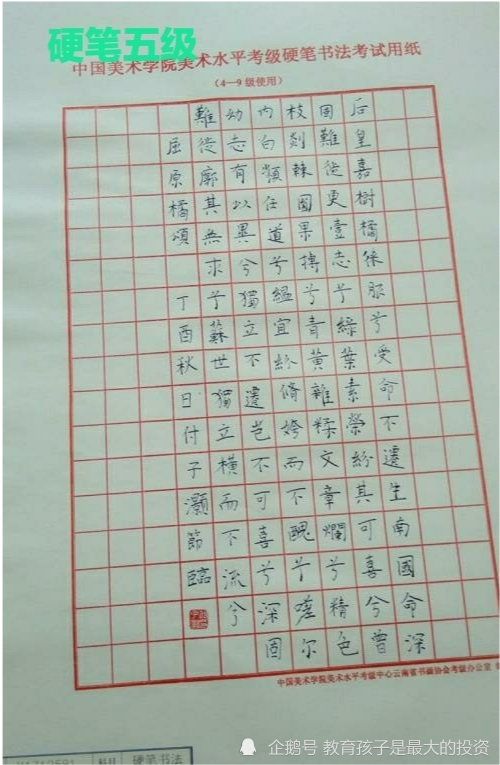 硬笔五级
中国美术学院美术水平考级硬笔书法考试用纸
（4—9级使用）
后皇嘉樹橘徠服兮受命不遷生南國命深
固難徙更壹志兮綠葉素榮紛其可喜兮曾
枝剡棘圓果摶兮青黃雜糅文章爛兮精色
内白類任道兮緼宜紛脩姱而不醜兮嗟尔
幼志有以異兮獨立不遷豈不可喜兮深固
難徙廓其無求兮蘇世獨立橫而不流兮
屈原橘頌 丁酉秋日付子灝節臨
中国美术学院美术水平考级中心云南省书画协会考级办公室
硬笔书法
企鹅号 教育孩子是最大的投资